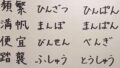 頻繁 ひんざつ ひんぱん
満帆 まんぽ まんぱん
便宜 びんせん べんぎ
踏襲 ふしゅう とうしゅう